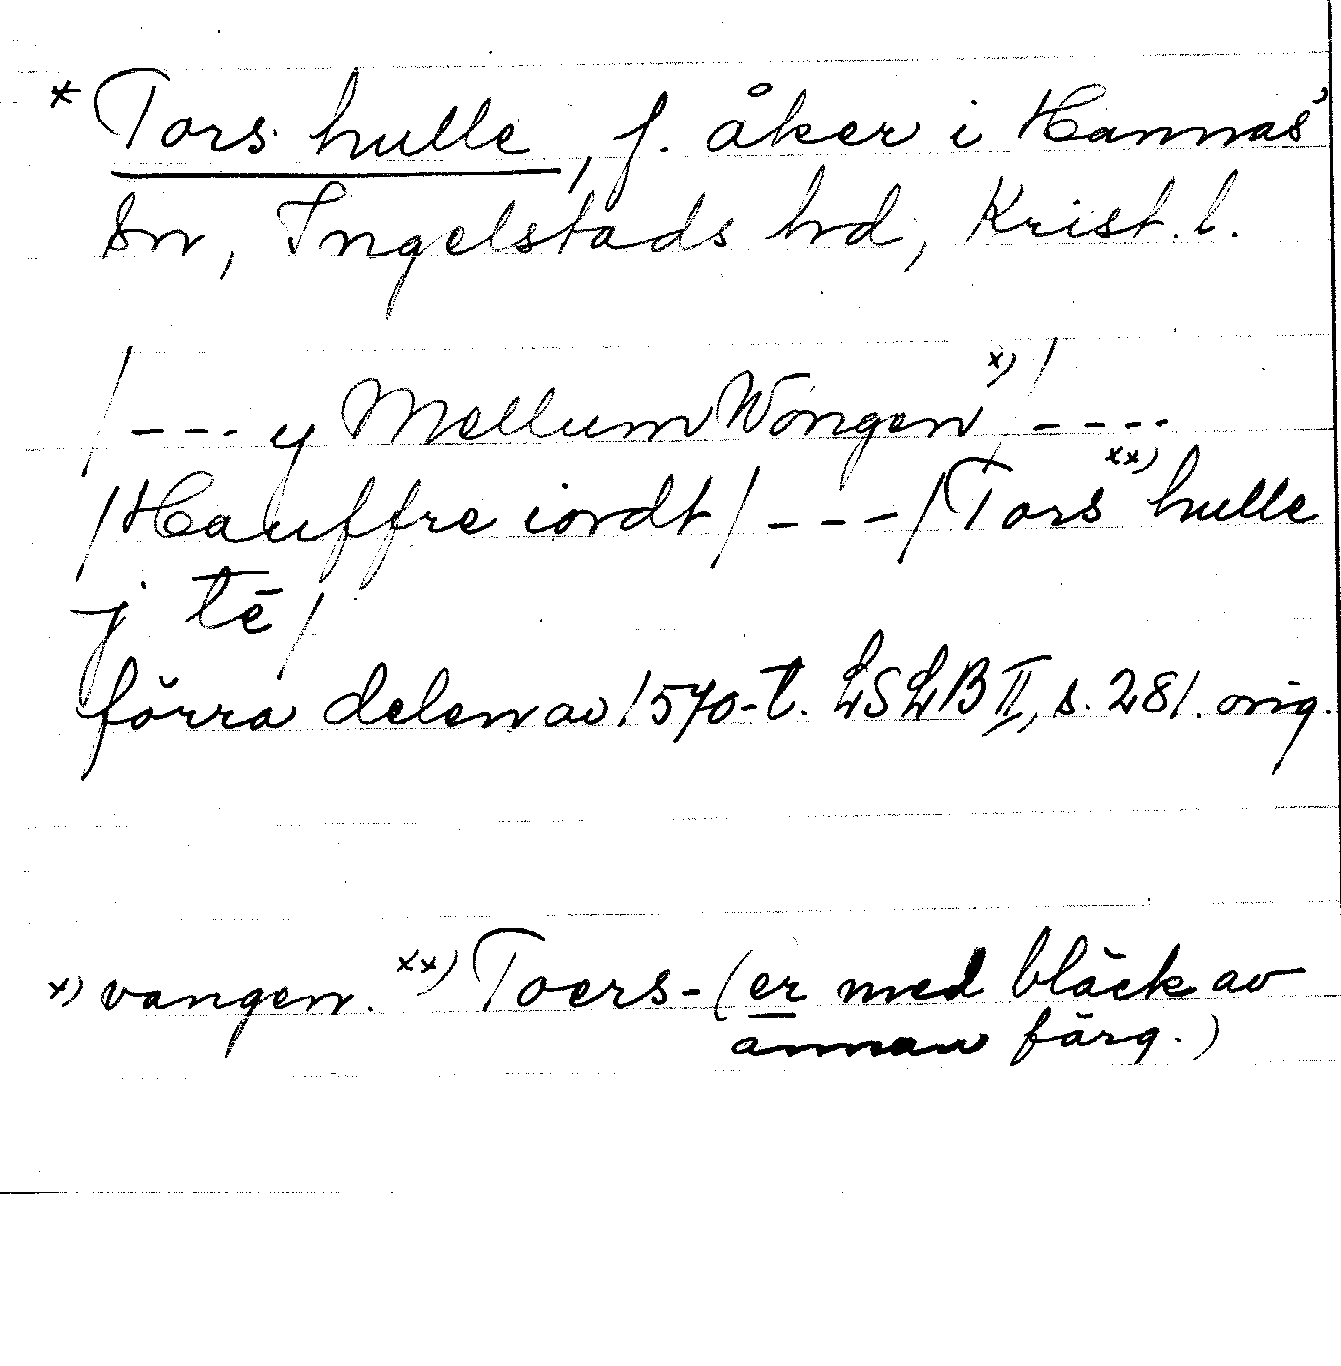 * Tors hulle, f. åker i Hannas'
sn, Ingelstads hd, Krist. l.
/--- y Mellum Wongen x) / ----
/Hauffre iordt/ --- /Tors xx) hulle
j tē/
förra delen av 1570-t. LSLB II, s. 281. orig.
x) vangen. xx) Toers- (er med bläck av
annan färg.)